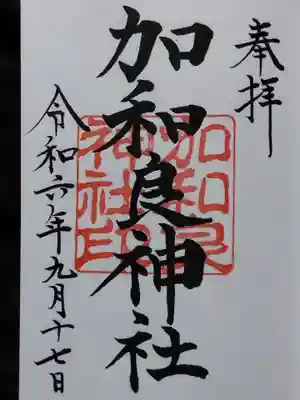 奉拝
加和良神社
加和良
神社印
令和六年九月十七日